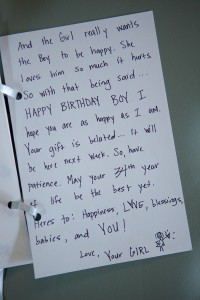 And the Girl really wants
the Boy to be happy. She
loves him so much it hurts.
So with that being said....
HAPPY BIRTHDAY BOY I
hope you are as happy as I am.
Your gift is belated... it will
be here next week. So, have
patience. May your 34th year
of life be the best yet.
Heres to: Happiness, LOVE, blessings,
babies, and YOU!
Love, Your GIRL